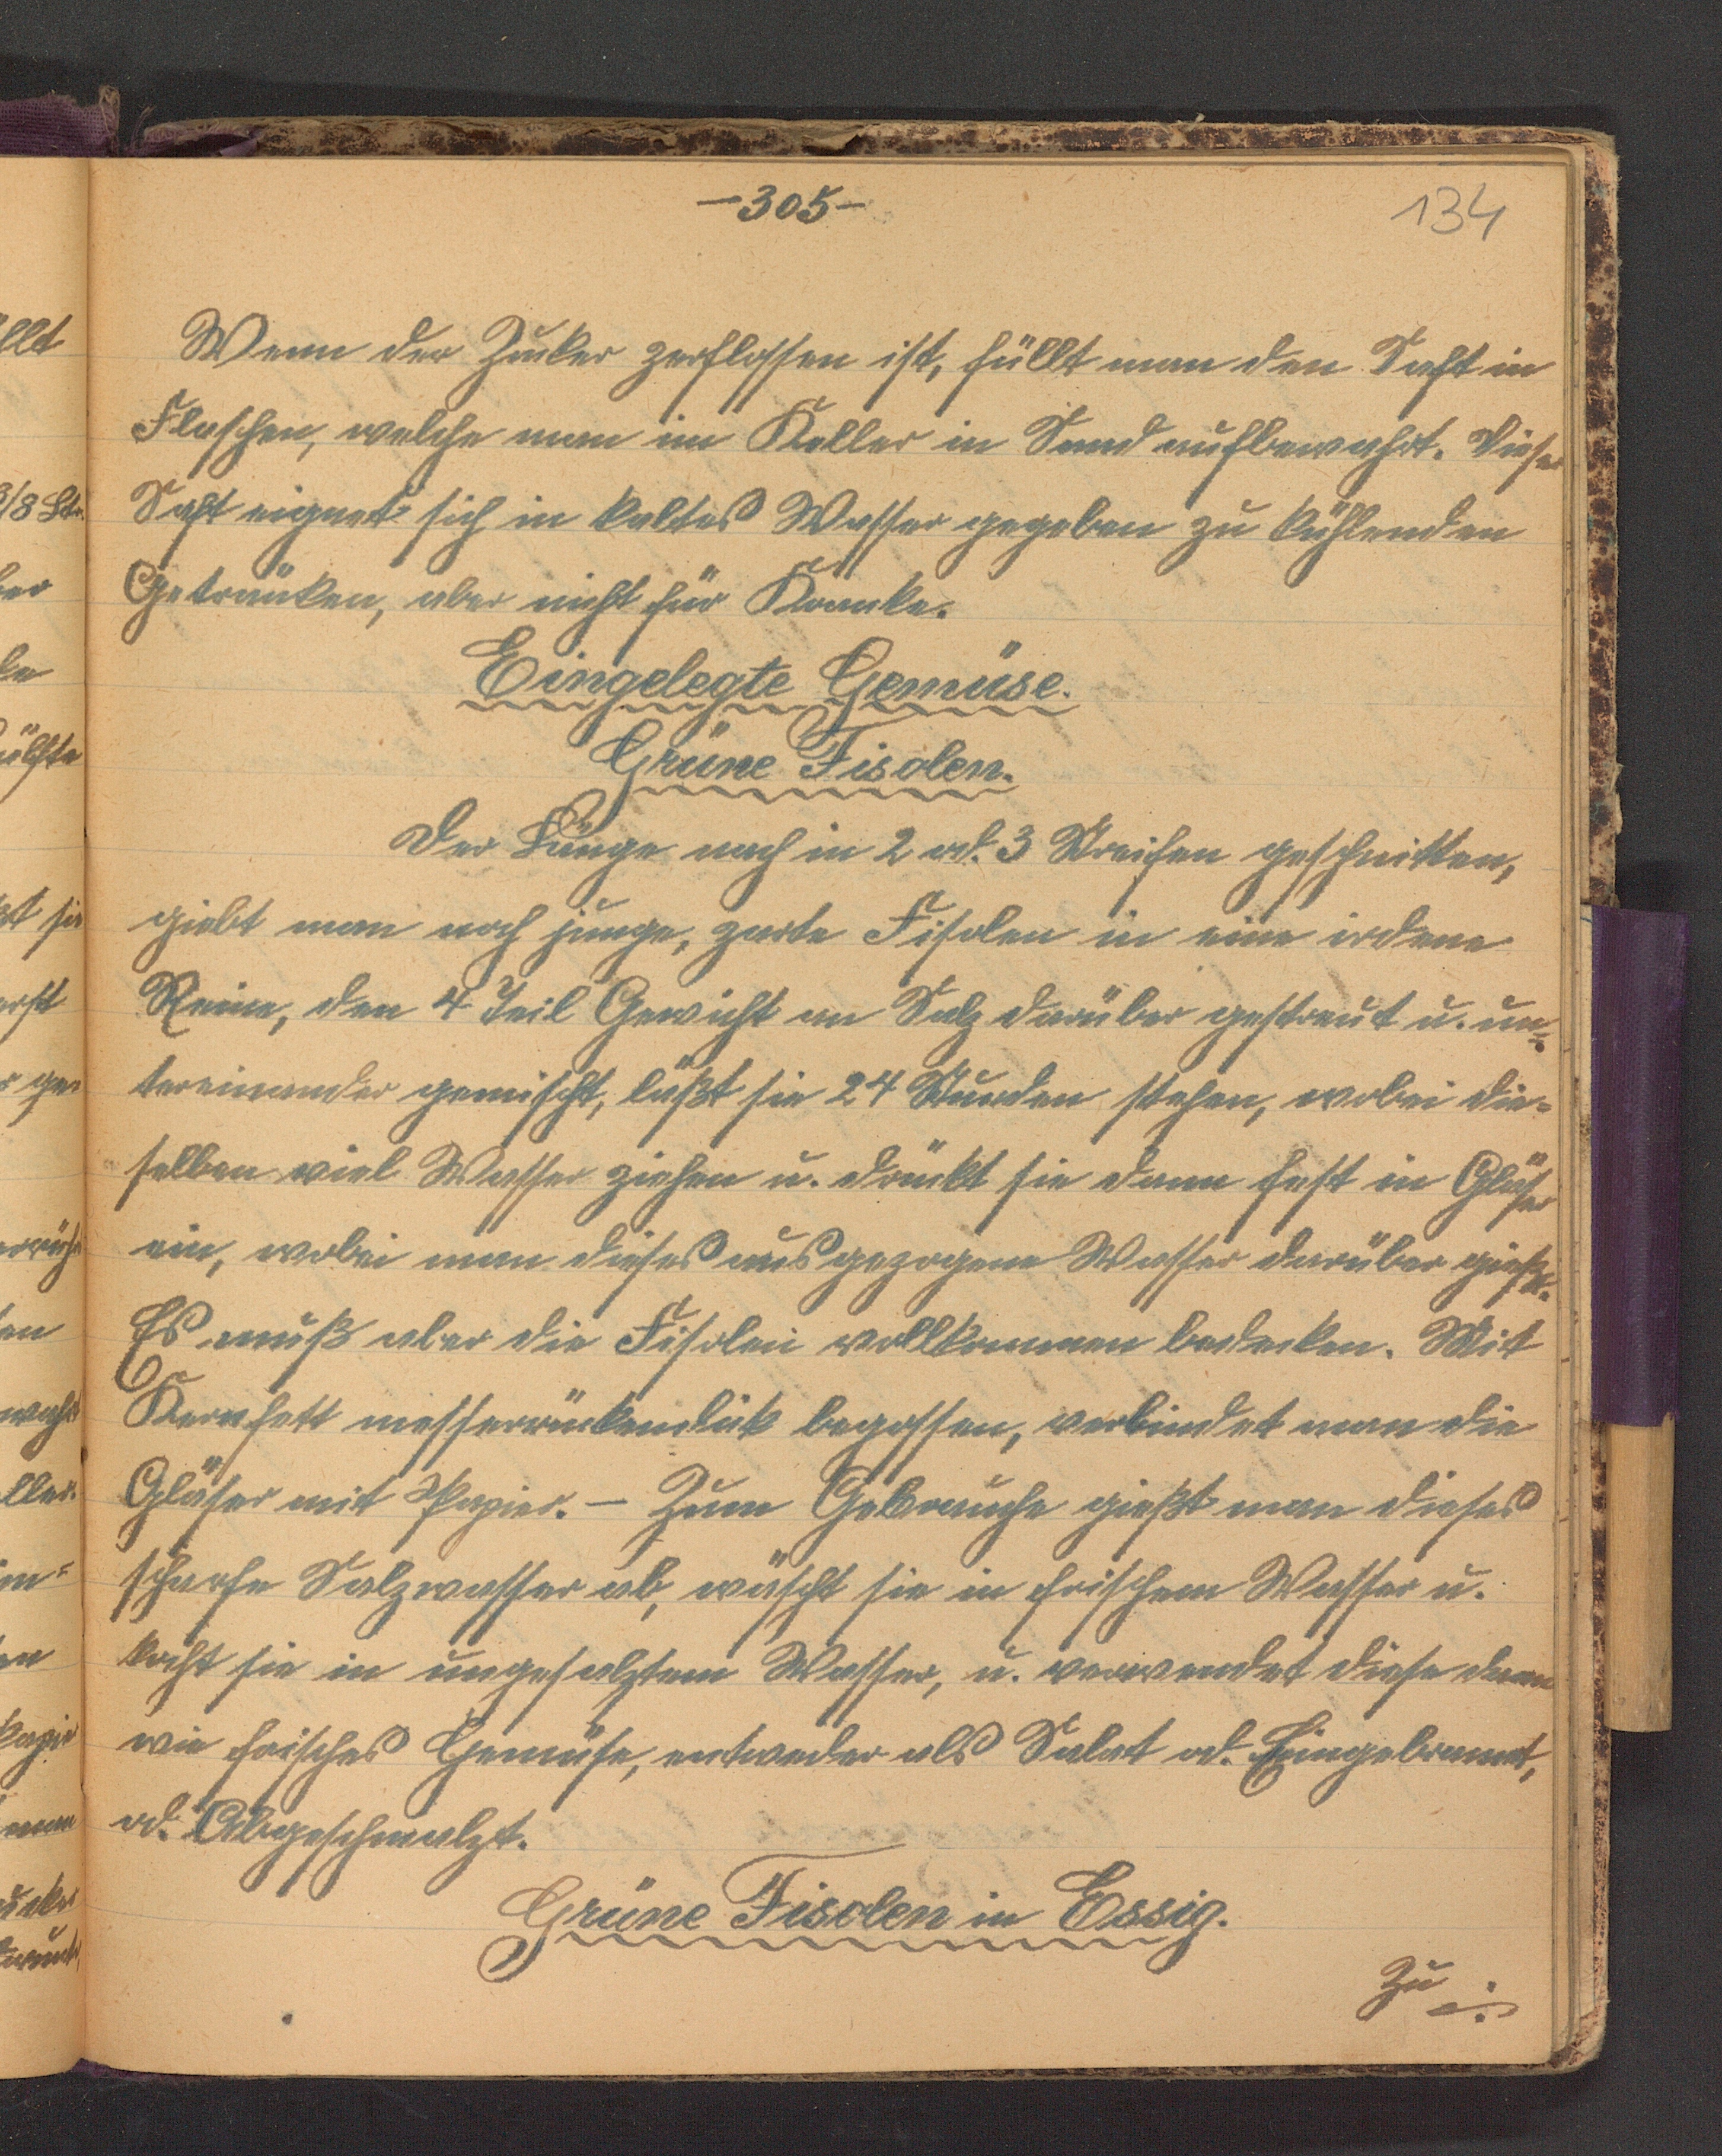 -305-
134
Wenn der Zucker zerflossen ist, füllt man den Saft in
Flaschen, welche man im Keller in Sand aufbewahrt. Dieser
Saft eignet sich in kaltes Wasser gegeben zu kühlenden
Getränken, aber nicht für Kranke.
Eingelegte Gemüse.
Grüne Fisolen.
Der Länge nach in 2 od. 3 Streifen geschnitten,
giebt man noch junge, zarte Fisolen in eine irdene
Reine, den 4 Teil Gewicht an Salz darüber gestreut u. un=
tereinander gemischt, läßt sie 24 Stunden stehen, wobei die=
selben viel Wasser ziehen u. drückt sie dann fest in Gläser
ein, wobei man dieses ausgezogene Wasser darüber gießt.
Es muß aber die Fisolen vollkommen bedecken. Mit
Kernfett messerrückendick begossen, verbindet man die
Gläser mit Papier. - Zum Gebrauche gießt man dieses
scharfe Salzwasser ab, wäscht sie in frischem Wasser u.
kocht sie in ungesalztem Wasser, u. verwendet diese dann
wie frisches Gemüse, entweder als Salat od. Eingebrannt,
od. Abgeschmalzt.
Grüne Fisolen in Essig.
Zu